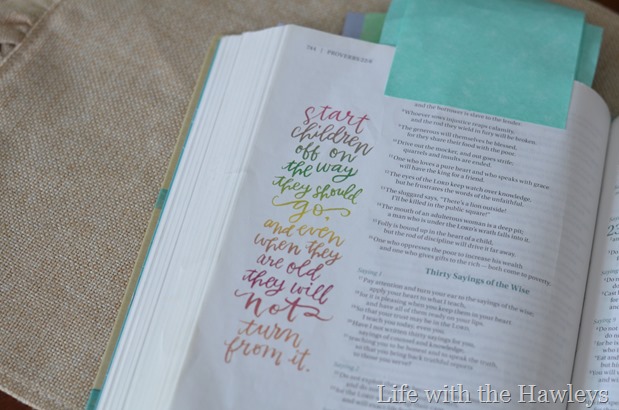 744 | PROVERBS 22:8
start
children
off on
the way
they should
go,
and even
when they
are old
they will
not
turn
from it.
and the borrower is slave to the lender.
Whoever sows injustice reaps calamity,
and the rod they wield in fury will be broken.
The generous will themselves be blessed,
for they share their food with the poor.
Drive out the mocker, and out goes strife;
quarrels and insults are ended.
One who loves a pure heart and who speaks with grace
will have the king for a friend.
The eyes of the LORD keep watch over knowledge,
but he frustrates the words of the unfaithful.
The sluggard says, "There's a lion outside!
I'll be killed in the public square!"
The mouth of an adulterous woman is a deep pit;
a man who is under the LORD's wrath falls into it.
Folly is bound up in the heart of a child,
but the rod of discipline will drive it far away.
One who oppresses the poor to increase his wealth
and one who gives gifts to the rich — both come to poverty.
Thirty Sayings of the Wise
Saying 1
Pay attention and turn your ear to the sayings of the wise;
apply your heart to what I teach,
for it is pleasing when you keep them in your heart
and have all of them ready on your lips.
So that your trust may be in the LORD,
I teach you today, even you.
Have I not written thirty sayings for you,
sayings of counsel and knowledge,
teaching you to be honest and to speak the truth,
so that you bring back truthful reports
to those you serve?
Saying 2
Do not exploit
and do not
for the LORD
and will exact
23
Life with the Hawleys